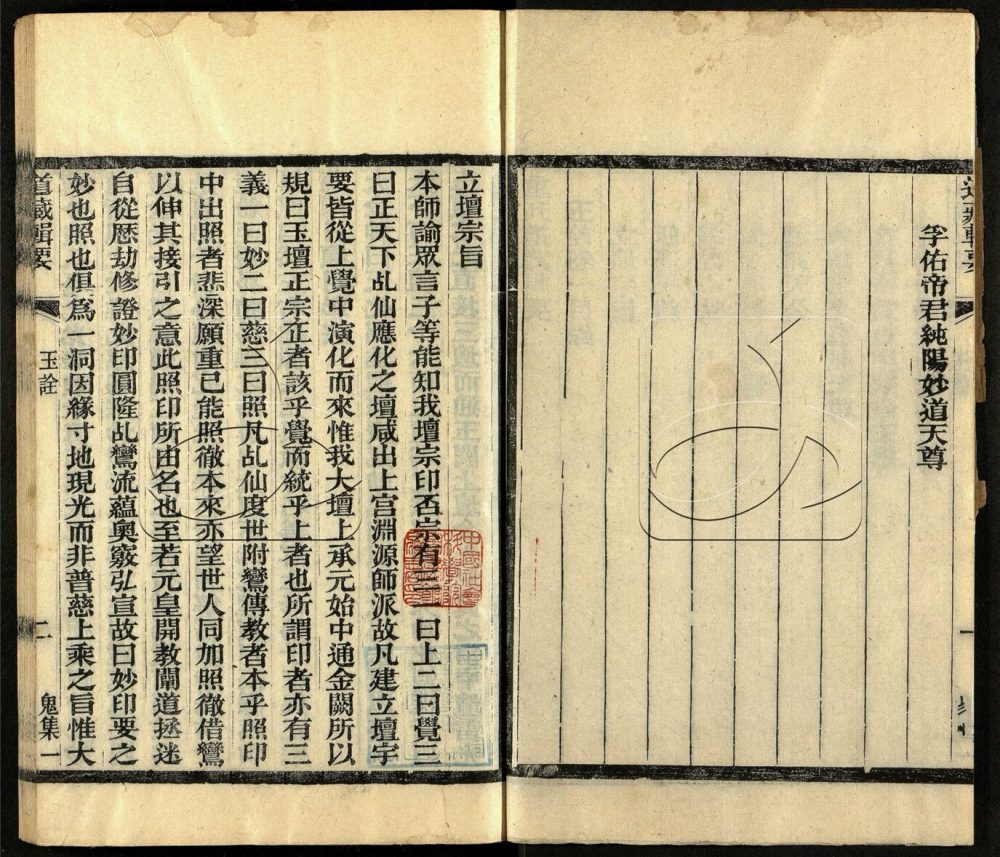 孚佑帝君純陽妙道天尊
立壇宗旨
本師諭眾言子等能知我壇宗印否宗有三一曰上二曰覺三
曰正天下乩仙應化之壇咸出上宮淵源師派故凡建立壇宇
要皆從上覺中演化而來惟我大壇上承元始中通金闕所以
規曰玉壇正宗正者該乎覺而統乎上者也所謂印者亦有三
義一曰妙二曰慈三曰照凡乩仙度世附鸞傳教者本乎照印
中出照者悲深願重已能照徹本來亦望世人同加照徹借鸞
以伸其接引之意此照印所由名也至若元皇開教闡道拯迷
自從歷劫修證妙印圓隆乩鸞流蘊奧竅弘宣故曰妙印要之
妙也照也俱為一洞因緣寸地現光而非普慈上乘之旨惟大
道藏輯要 玉詮 二 鬼集一